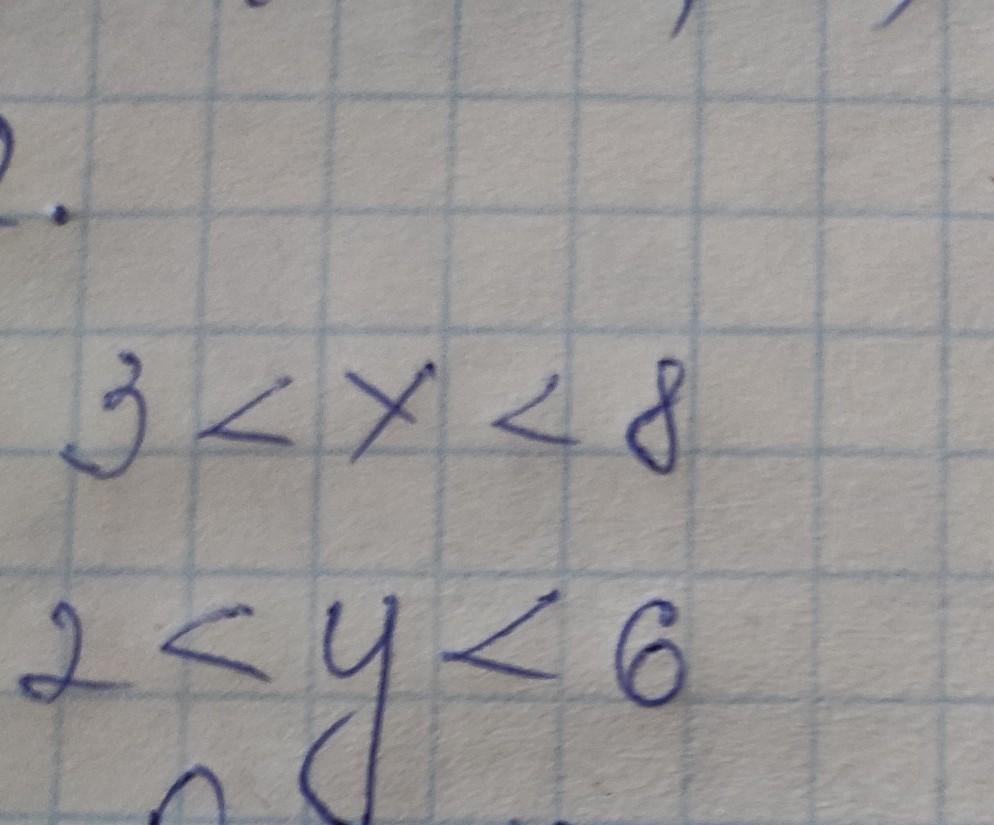 2.
3 < x < 8
2 < y < 6